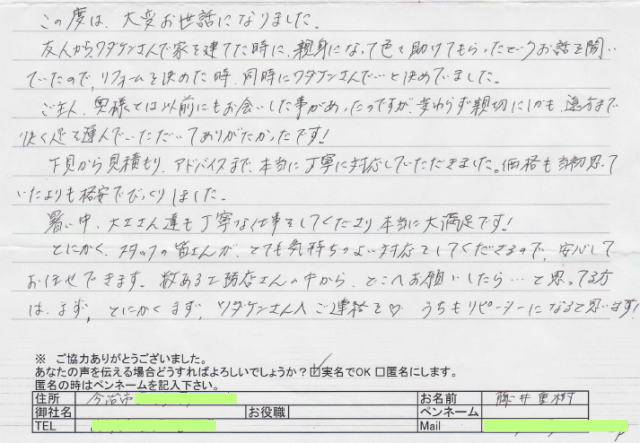 この度は、大変お世話になりました。
友人からワダケンさんで家を建てた時に、親身になって色々助けてもらったというお話を聞い
ていたので、リフォームを決めた時、同時にワダケンさんで…と決めていました。
ご主人、奥様とは以前にもお会いした事があったのですが、変わらず親切にしかも、遠方まで
快く足を運んでいただいてありがたかったです!
下見から見積もり、アドバイスまで、本当に丁寧に対応していただきました。価格も当初思って
いたよりも格安でびっくりしました。
暑い中、大工さん達も丁寧な仕事をしてくださり本当に大満足です!
とにかく、スタッフの皆さんが、とても気持ちのよい対応をしてくださるので、安心して
お任せできます。数ある工務店さんの中から、どこへお願いしたら…と思ってる方
は、まず、とにかくまず、ワダケンさんへご連絡を♡ うちもリピーターになると思います!
※ ご協力ありがとうございました。
あなたの声を伝える場合どうすればよろしいでしょうか?☑実名でOK □匿名にします。
匿名の時はペンネームを記入下さい。
住所 今治市 お名前 藤井
御社名 お役職 ペンネーム
TEL Mail